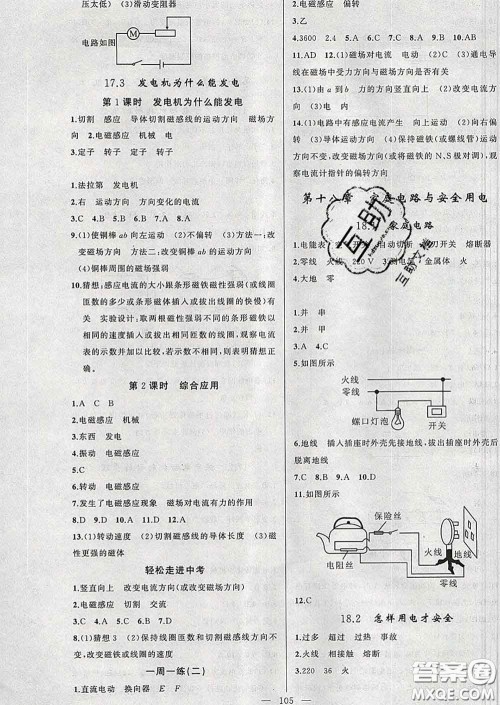 压太低) (3)滑动变阻器
电路如图
M
17.3 发电机为什么能发电
第1课时 发电机为什么能发电
1.切割 感应 导体切割磁感线的运动方向 磁场方
向 2.电磁感应 机械 电
3.定子 转子 定子 转子
1.法拉第 发电机
2.右 运动方向 方向变化的电流
3.C 4.B 5.A 6.B 7.A 8.D
9.(1)使铜棒ab向左运动 (2)不偏转 (3)方法一:改
变磁场方向 方法二:改变铜棒ab的运动方向
(4)铜棒周围的磁场强弱
10.猜想:感应电流的大小跟条形磁铁磁性强弱(或线圈
匝数的多少或条形磁铁插入或拔出线圈的快慢)有
关 实验设计:取两根磁性强弱不同的条形磁铁以
相同的速度插入或拔出相同匝数的线圈,观察电流
表的示数并加以比较,若示数不同,则表明猜想正
确。
第2课时 综合应用
1.A C B
2.电磁感应 机械
3.东西 发电
4.振动 电磁感应
5.C
6.转动 电磁感应
7.发生了电磁感应现象 磁场对电流有力的作用
8.D 9.D 10.A 11.C 12.D
13.(1)转动速度 (2)切割磁感线的导体长度 (3)磁
性更强的磁体
轻松走进中考
1.竖直向上 改变电流方向(或改变磁场方向)
2.电磁感应 交变
3.C 4.B 5.D 6.B 7.C
8.(1)猜想3 (2)保持线圈匝数和切割磁感线方向不
变,改变磁铁或线圈的速度
一周一练(二)
1.直流电动 换向器 E F
2.电磁感应 偏转
3.C
4.3600 24 5.C 6.B 7.D 8.A 9.A 10.D
11.AD 12.(1)磁场对电流 电动 (2)通电导
线在磁场中受力方向与磁场方向是否有关
13.(1)由a到b 力的方向竖直向上 (2)改变电流方
向 (3)电 内
14.(1)电路中有感应电流产生 向上或向下 电磁感
(3)导体运动方向 (4)保持磁铁(或螺线管)运动
方向不变,改变磁场方向(或将磁铁的N、S极对调),观
察电流计指针的偏转方向
第十八章 家庭电路与安全用电
家庭电路
2.零线 火线 220V
4.大地 零
1.并 串
2.并 甲
3.C 4.C
5.如图所示
火线
零线
螺口灯泡
开关
6.地线 插入插座时外壳先接地线,拔出插座时外壳后
脱离地线
7.C 8.B 9.A 10.A
11.如图所示
保险丝
火线
地线
电阻丝
零线
12.C
18.2 怎样用电才安全
1.过多 超过 过热 事故
2.火线 相接触 熔断
3.220 36 火
三助
三助文档
105
答案圈
MXQE.COM